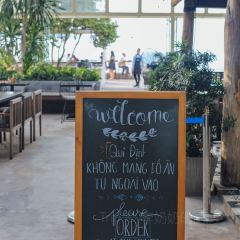 welcome
Qui Định
KHÔNG MANG ĐỒ ĂN
TỪ NGOÀI VÀO
please
ORDER